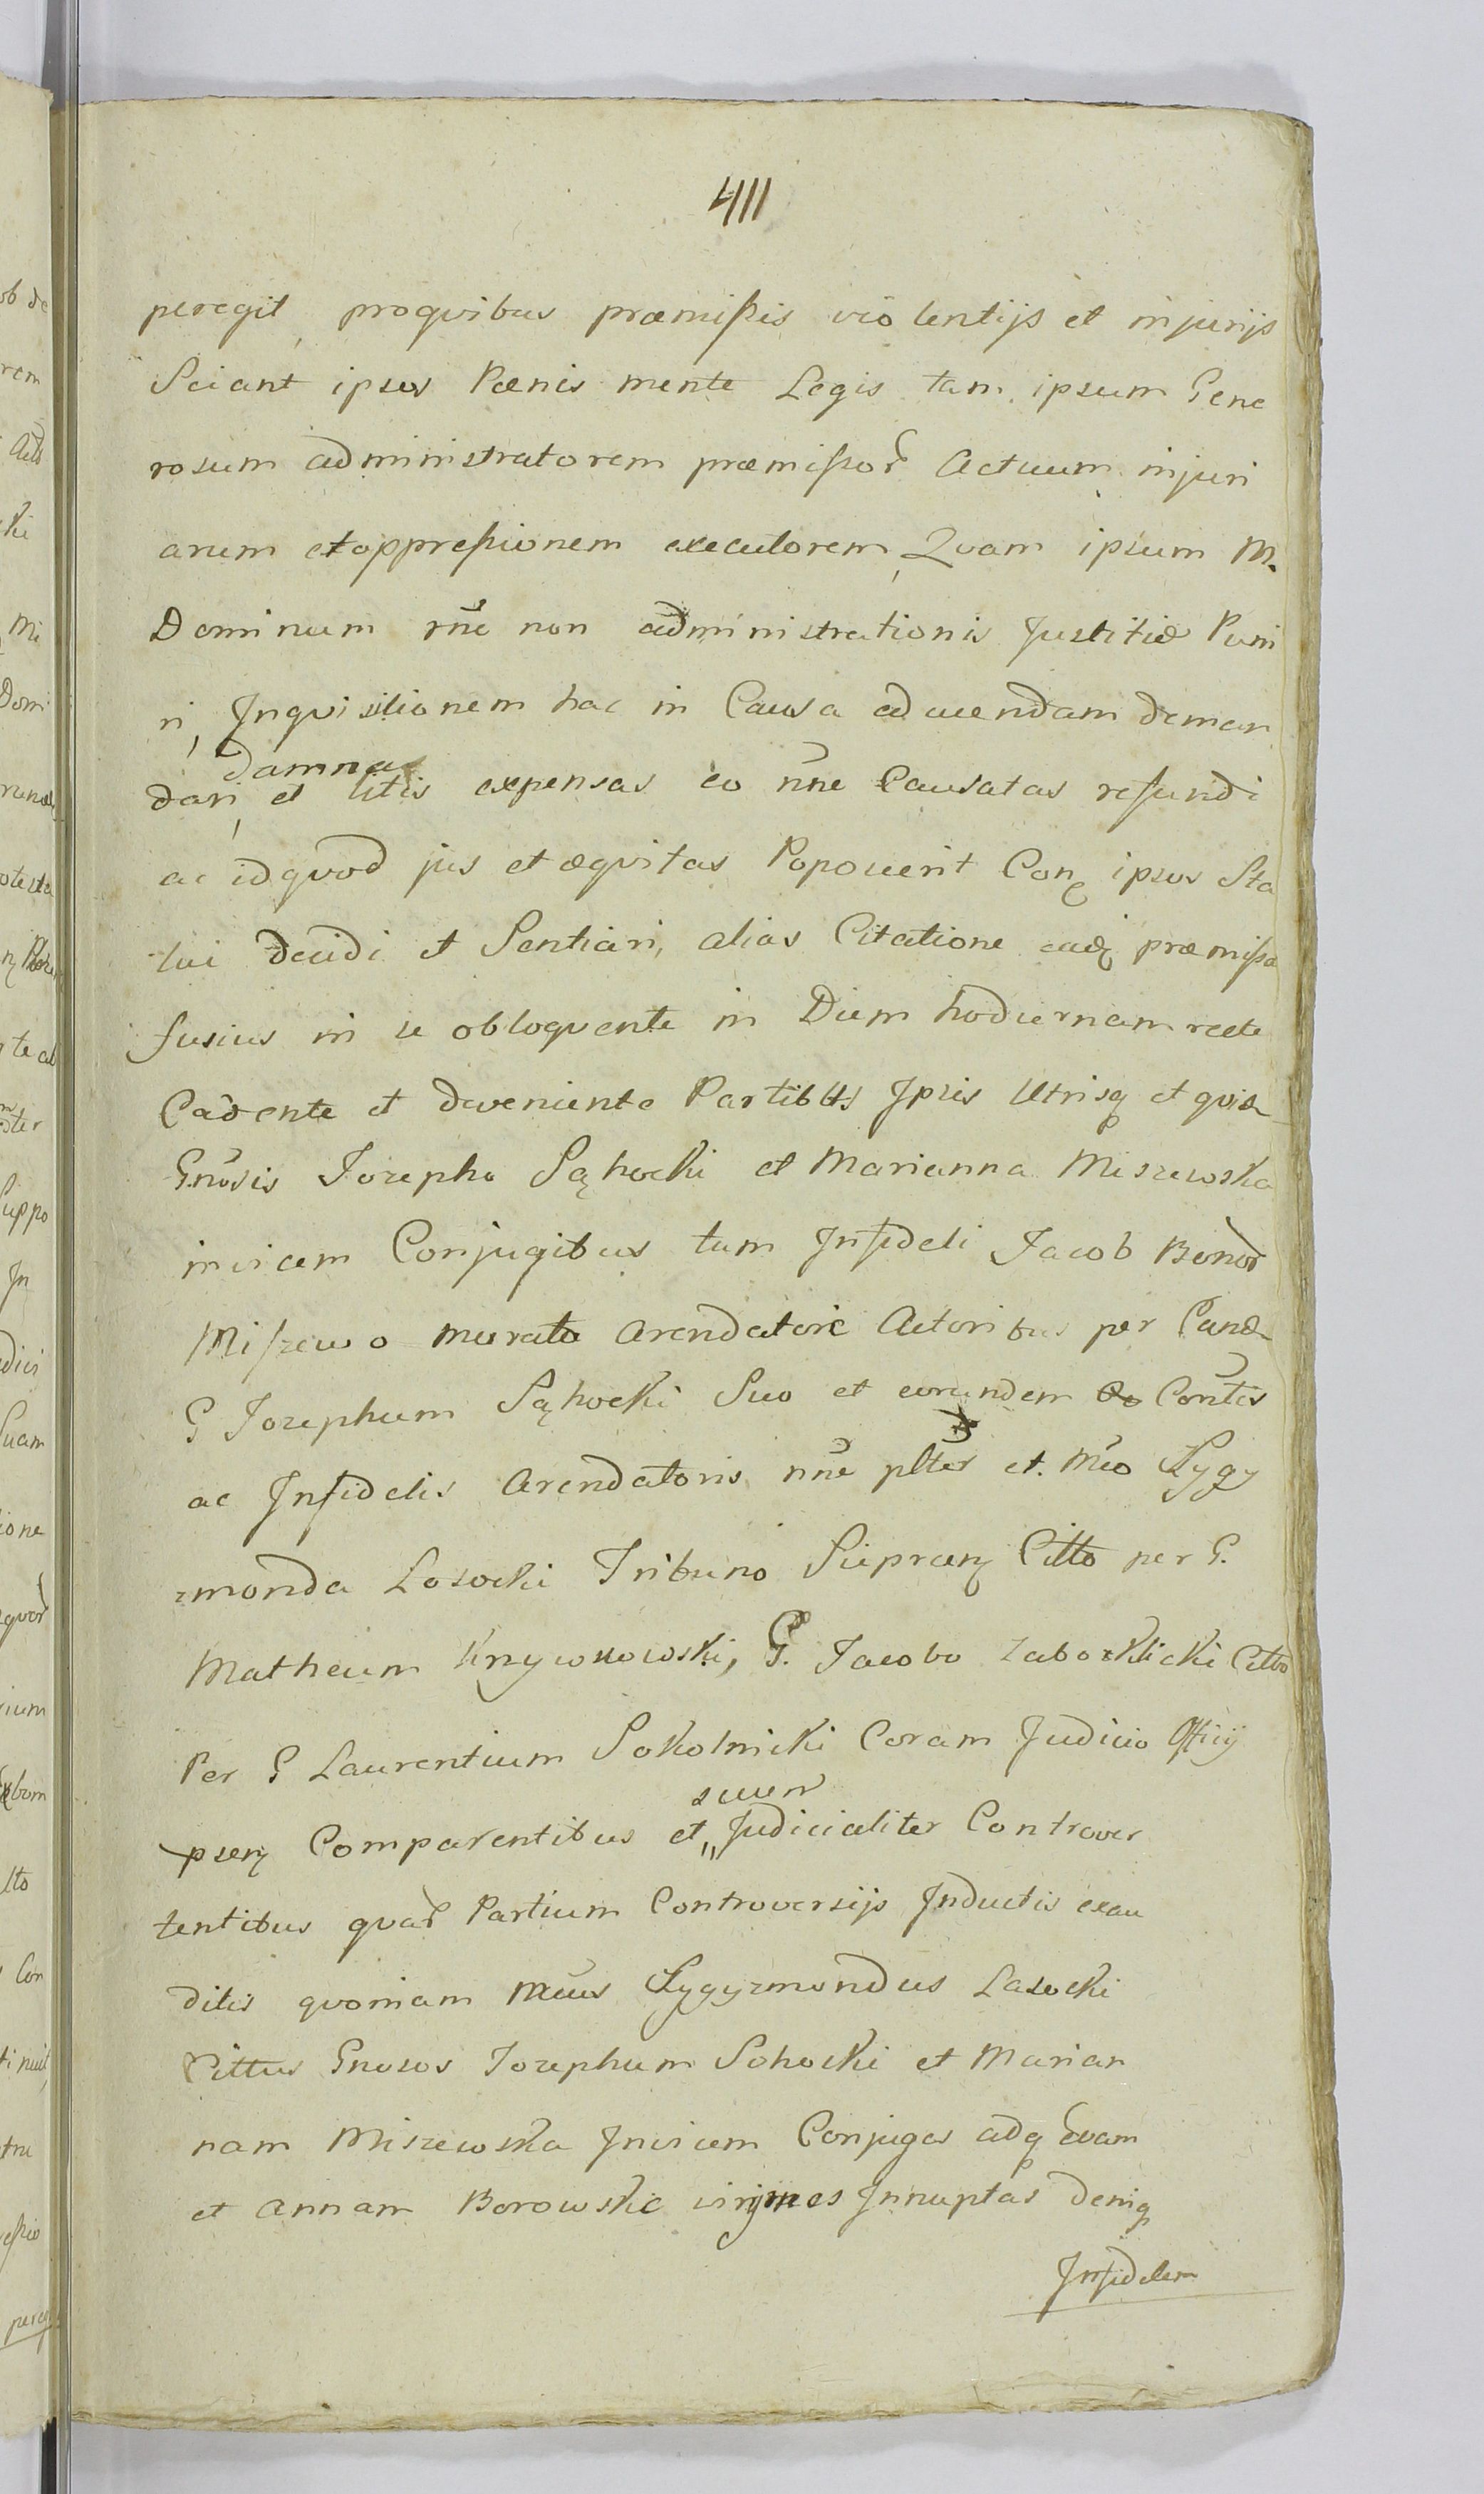 411
peregit, proqvibus præmißis violentijs et injurijs
Sciant ipsos Pœnis mente Legis tam ipsum Gene
rosum administratorem præmißor Actuum injuri
arum et oppreßionem executorem, Qvam ipsum M.
Dominum rne non administrationis Justitiæ Puni
ri, Inqvisitionem hac in Causa educendam deman
damna
dari, et litis expensas eo nne Causatas refundi
ac id qvod jus et æqvitas Poposcerit Conq ipsos Sta
tui decidi et Sentiari, alias Citatione eadq præmißa
fusius in se obloqvente in Diem hodiernam recte
Cadente et deveniente Partibus Ipsis Utrisq et qvidem
Gnosis Josepho Sąhocki et Marianna Miszewska
invicem Conjugibus tum Infideli Jacob Bonor
Miszewo murata Arendatore Actoribus per Cand
G Josephum Sąhocki Suo et eorundem Contis
ac Infidelis Arendatoris nne plter et Mco Zygy
zmonda Lasocki Tribuno Sieprcenq Citto per G.
Matheum Krzywkowski, G. Jacobo Zaboklicki Citto
Per G Laurentium Sokolnicki Coram Judicio Officij
suum
psenq Comparentibus et Judicialiter Controver
tentibus qvar Partium Controversijs Inductis exau
ditis qvoniam Mcus Zygyzmondus Lasocki
Cittus Gnosos Josephum Sohocki et Marian
nam Miszewska Invicem Conjuges adq Evam
et Annam Borowskie virgines Innuptas deniq
Infidelem